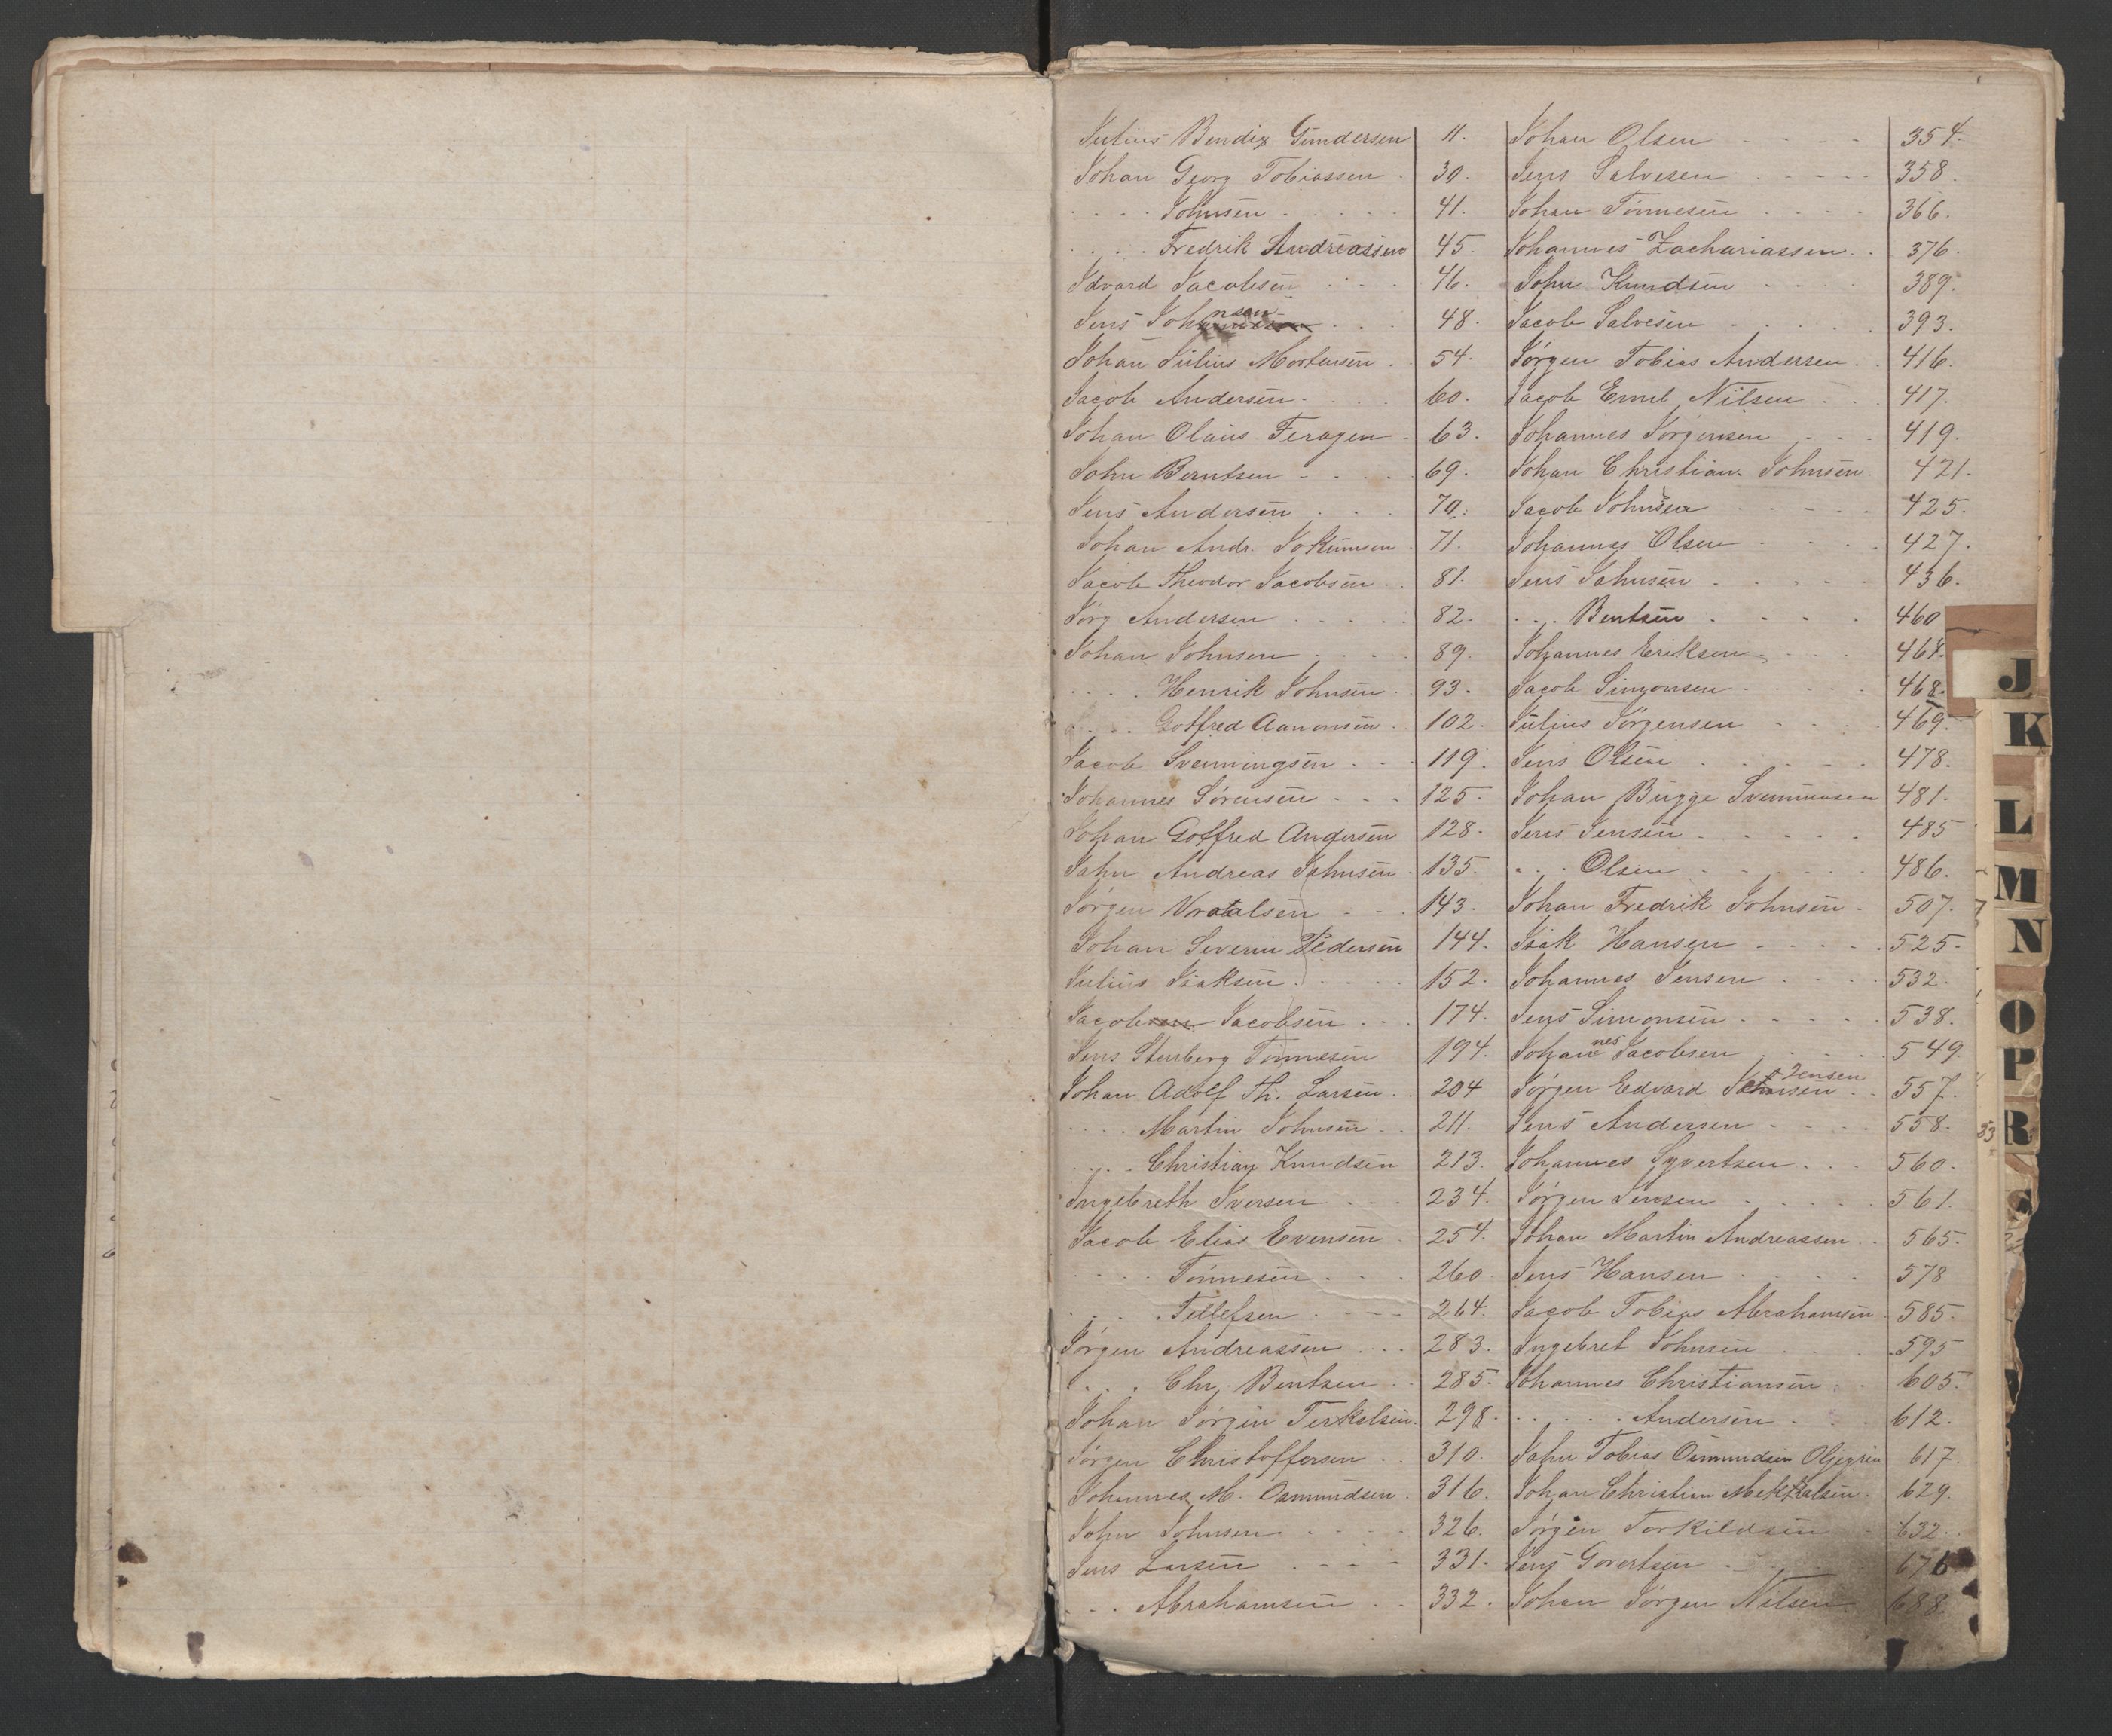 Julius Bendix Gundersen 11.
Johan Georg Tobiassen . 30.
. . . . Johnsen . . . . . 41.
. . . . Fredrik Andreassen 45.
Edvard Jacobsen . . . 46.
Jens Johnsen . . . 48.
Johan Julius Mortensen . . 54.
Jacob Andersen . . . . 60.
Johan Olaus Feragen . 63.
John Berntsen . . . . 69.
Jens Andersen . . . 70.
Johan Andr. Jokumsen . 71.
Jacob Theodor Jacobsen . . 81.
Jörg Andersen . . . . . 82.
Johan Johnsen . . . . 89.
. . . . Henrik Johnsen . . 93.
. . . . Gotfred Aanonsen . . 102.
Jacob Svenningsen . . . 119.
Johannes Sörensen . . . 125.
Johan Gotfred Andersen 128.
John Andreas Johnsen . 135.
Jörgen Vratalsen . . . 143.
Johan Severin Pedersen 144.
Julius Isaksen . . . . . 152.
Jacob Jacobsen . . . 174.
Jens Stenberg Tönnesen 194.
Johan Adolf Th. Larsen . . 204
. . . . Martin Johnsen . . 211.
. . . . Christian Knudsen 213.
Ingebreth Iversen . . . 234.
Jacob Elias Evensen . 254.
. . . . Tönnesen . . . 260
. . . . Tellefsen . . . . 264.
Jörgen Andreassen . . . 283.
. . . . Chr. Bentsen . . 285.
Johan Jörgen Terkelsen . 298.
Jörgen Christoffersen . . 310.
Johannes M. Osmundsen . 316.
John Johnsen . . . . 326.
Jens Larsen . . . . 331.
. . . Abrahamsen . . 332.
Johan Olsen . . . . 354.
Jens Salvesen . . . . . 358.
Johan Tönnesen . . . . 366.
Johannes Zachariassen . . 376.
John Knudsen . . . . 389.
Jacob Salvesen . . . . . 393.
Jörgen Tobias Andersen . . 416.
Jacob Emil Nilsen . . . 417.
Johannes Jörgensen . . . 419.
Johan Christian Johnsen . 421.
Jacob Johnsen . . . . . 425.
Johannes Olsen . . . . 427.
Jens Johnsen . . . . . 436.
. . . Bentsen . . . . 460
Johannes Eriksen . . . 464.
Jacob Simonsen . . . . . 468.
Julius Jörgensen . . . . 469.
Jens Olsen . . . . . 478.
Johan Bugge Svenningsen 481.
Jens Jensen . . . . . 485
. . . Olsen . . . . . . 486.
Johan Fredrik Johnsen . 507.
Isak Hansen . . . . . 525.
Johannes Jensen . . . . 532.
Jens Simonsen . . . . . 538.
Johannes Jacobsen . . . . . 549.
Jörgen Edvard Jensen . . 557.
Jens Andersen . . . . 558.
Johannes Syvertsen . . . 560.
Jörgen Jensen . . . . . 561.
Johan Martin Andreassen . . 565.
Jens Hansen . . . . 578
Jacob Tobias Abrahamsen . 585.
Ingebret Johnsen . . . . 595
Johannes Christiansen . . 605.
. . . . . Andersen . . . 612.
John Tobias Osmundsen 617.
Johan Christian 629.
Jörgen Torkildsen 632.
Jens Govertsen . . 676
Johan Jörgen Nilsen 688.
J
K
L
M
N
O
P
R
S
33